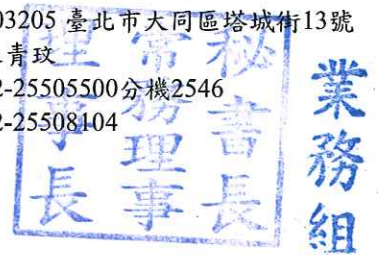 03205 臺北市大同區塔城街13號
青玟
2-25505500分機2546
2-25508104
秘書長
常務理事
理事長
業務組